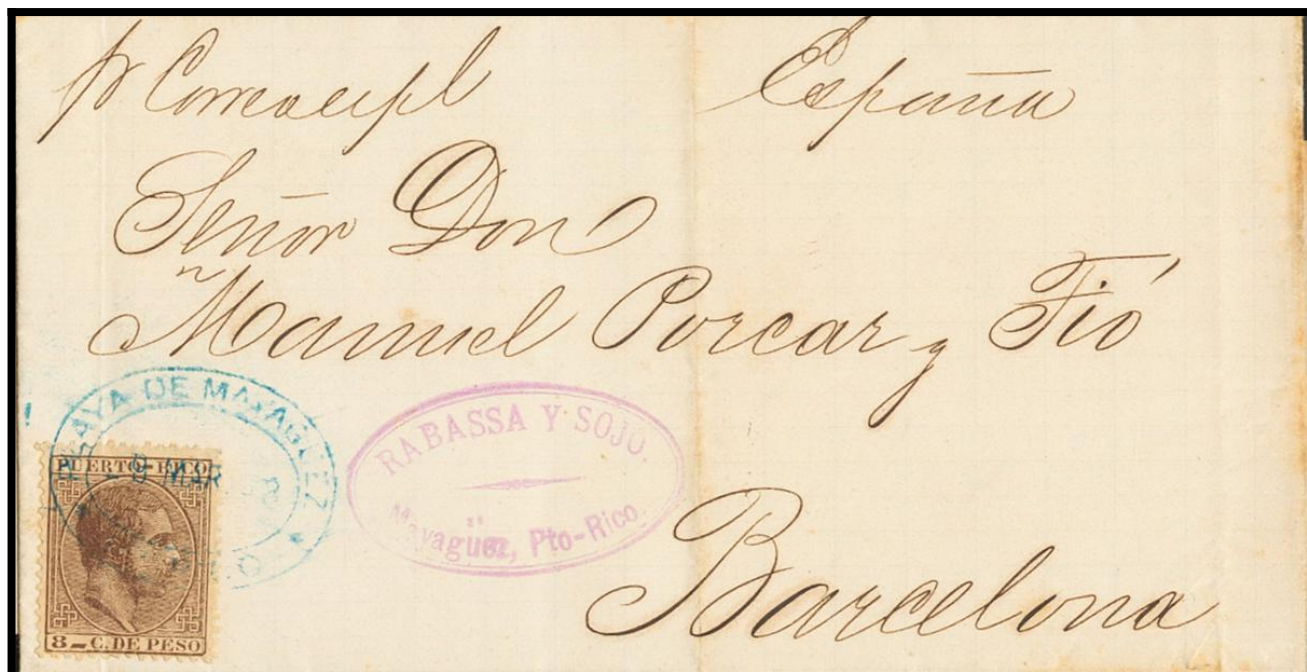 pr Correo espl España
Señor Don
Manuel Porcar y Tió
PLAYA DE MAYAGUEZ
MAR
RABASSA Y SOJO.
Mayagüez, Pto-Rico.
PUERTO-RICO
8-C. DE PESO
Barcelona